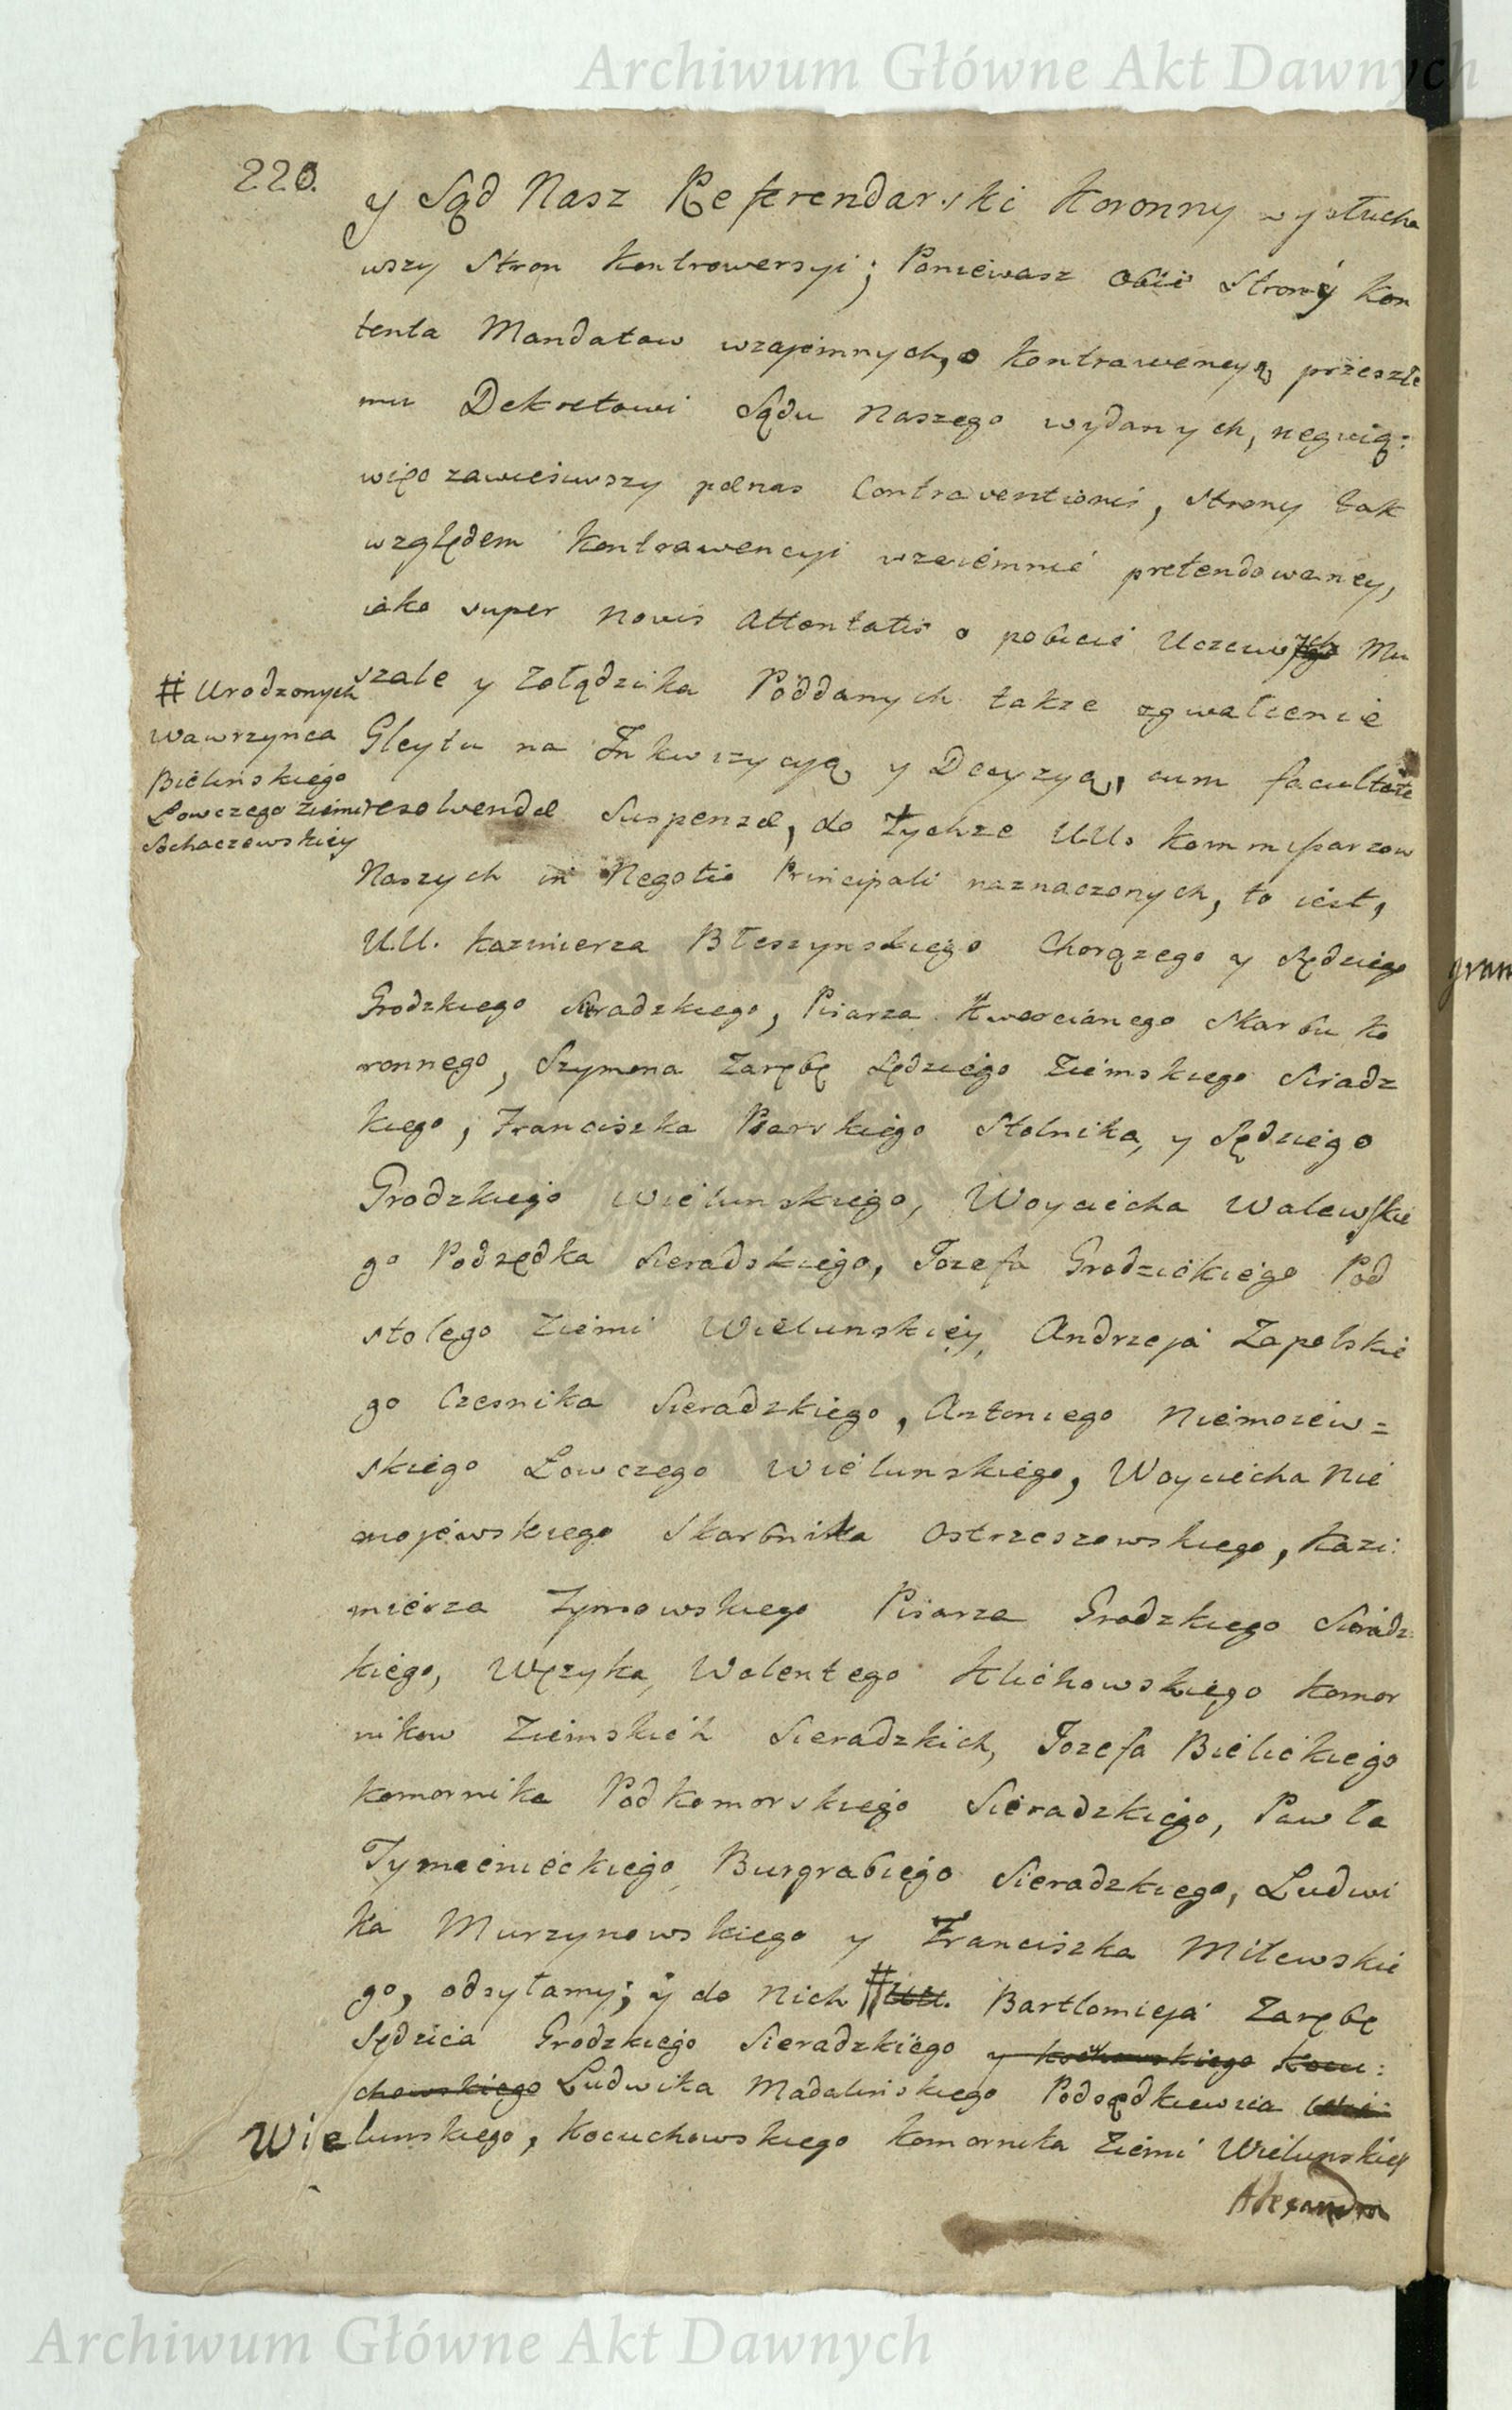 Archiwum Główne Akt Dawnych
220.
y Sąd Nasz Referendarski Koronny wysłucha
wszy Stron Kontrowersyi; Poniewasz obie Strony Kon
tenta Mandatow wzajemnych, o Kontrawencyą przeszłe
mu Dekretowi Sądu Naszego wydanych, neguią:
więc zawiesiwszy pœnas Contraventionis, Strony tak
względem Kontrawencyi wzaiemnie pretendowaney,
iako super novis Attentatis o pobicie Uczciwych Mu
szale y Zołądzika Poddanych takze zgwałcenie
Gleytu na Inkwizycyą y Decyzyą, cum facultate
resolvendæ Suspensæ, do tychze UUr Kommissarzow
Naszych in Negotio Principali naznaczonych, to iest,
UU. Kazmierza Błeszynskiego Chorązego y Sędziego
Grodzkiego Siradzkiego, Pisarza Kwarcianego Skarbu Ko
ronnego, Szymona Zarębę Sędziego Ziemskiego Siradz
kiego, Franciszka Psarskiego Stolnika, y Sędziego
Grodzkiego Wielunskiego, Woyciecha Walewskie
go Podsędka Sieradskiego, Jozefa Grodzickiego Pod
stolego Ziemi Wielunskiey, Andrzeja Zapolskie
go Czesnika Sieradzkiego, Antoniego Niemoiew=
skiego Łowczego Wielunskiego, Woyciecha Nie
mojewskiego Skarbnika Ostrzeszowskiego, Kazi:
mierza Tymowskiego Pisarza Grodzkiego Sieradz:
kiego, Węzyka, Walentego Klichowskiego Komor
nikow Ziemskich Sieradzkich, Jozefa Bielickiego
Komornika Podkomorskiego Sieradzkiego, Pawła
Tymienieckiego Burgrabiego Sieradzkiego, Ludwi
ka Murzynowskiego y Franciszka Milewskie
go, odsyłamy; y do Nich # UU. Bartłomieja Zarębę
Sędzica Grodzkiego Sieradzkiego y Kochowskiego Kocu:
chowskiego Ludwika Madalinskiego Podsędkiewica Wie:
Wielunskiego, Kocuchowskiego Komornika Ziemi Wielunskiey
Alexandra
# Urodzonych
Wawrzynca
Bielinskiego
Łowczego Ziemi
Sochaczewskiey
gran
Archiwum Główne Akt Dawnych